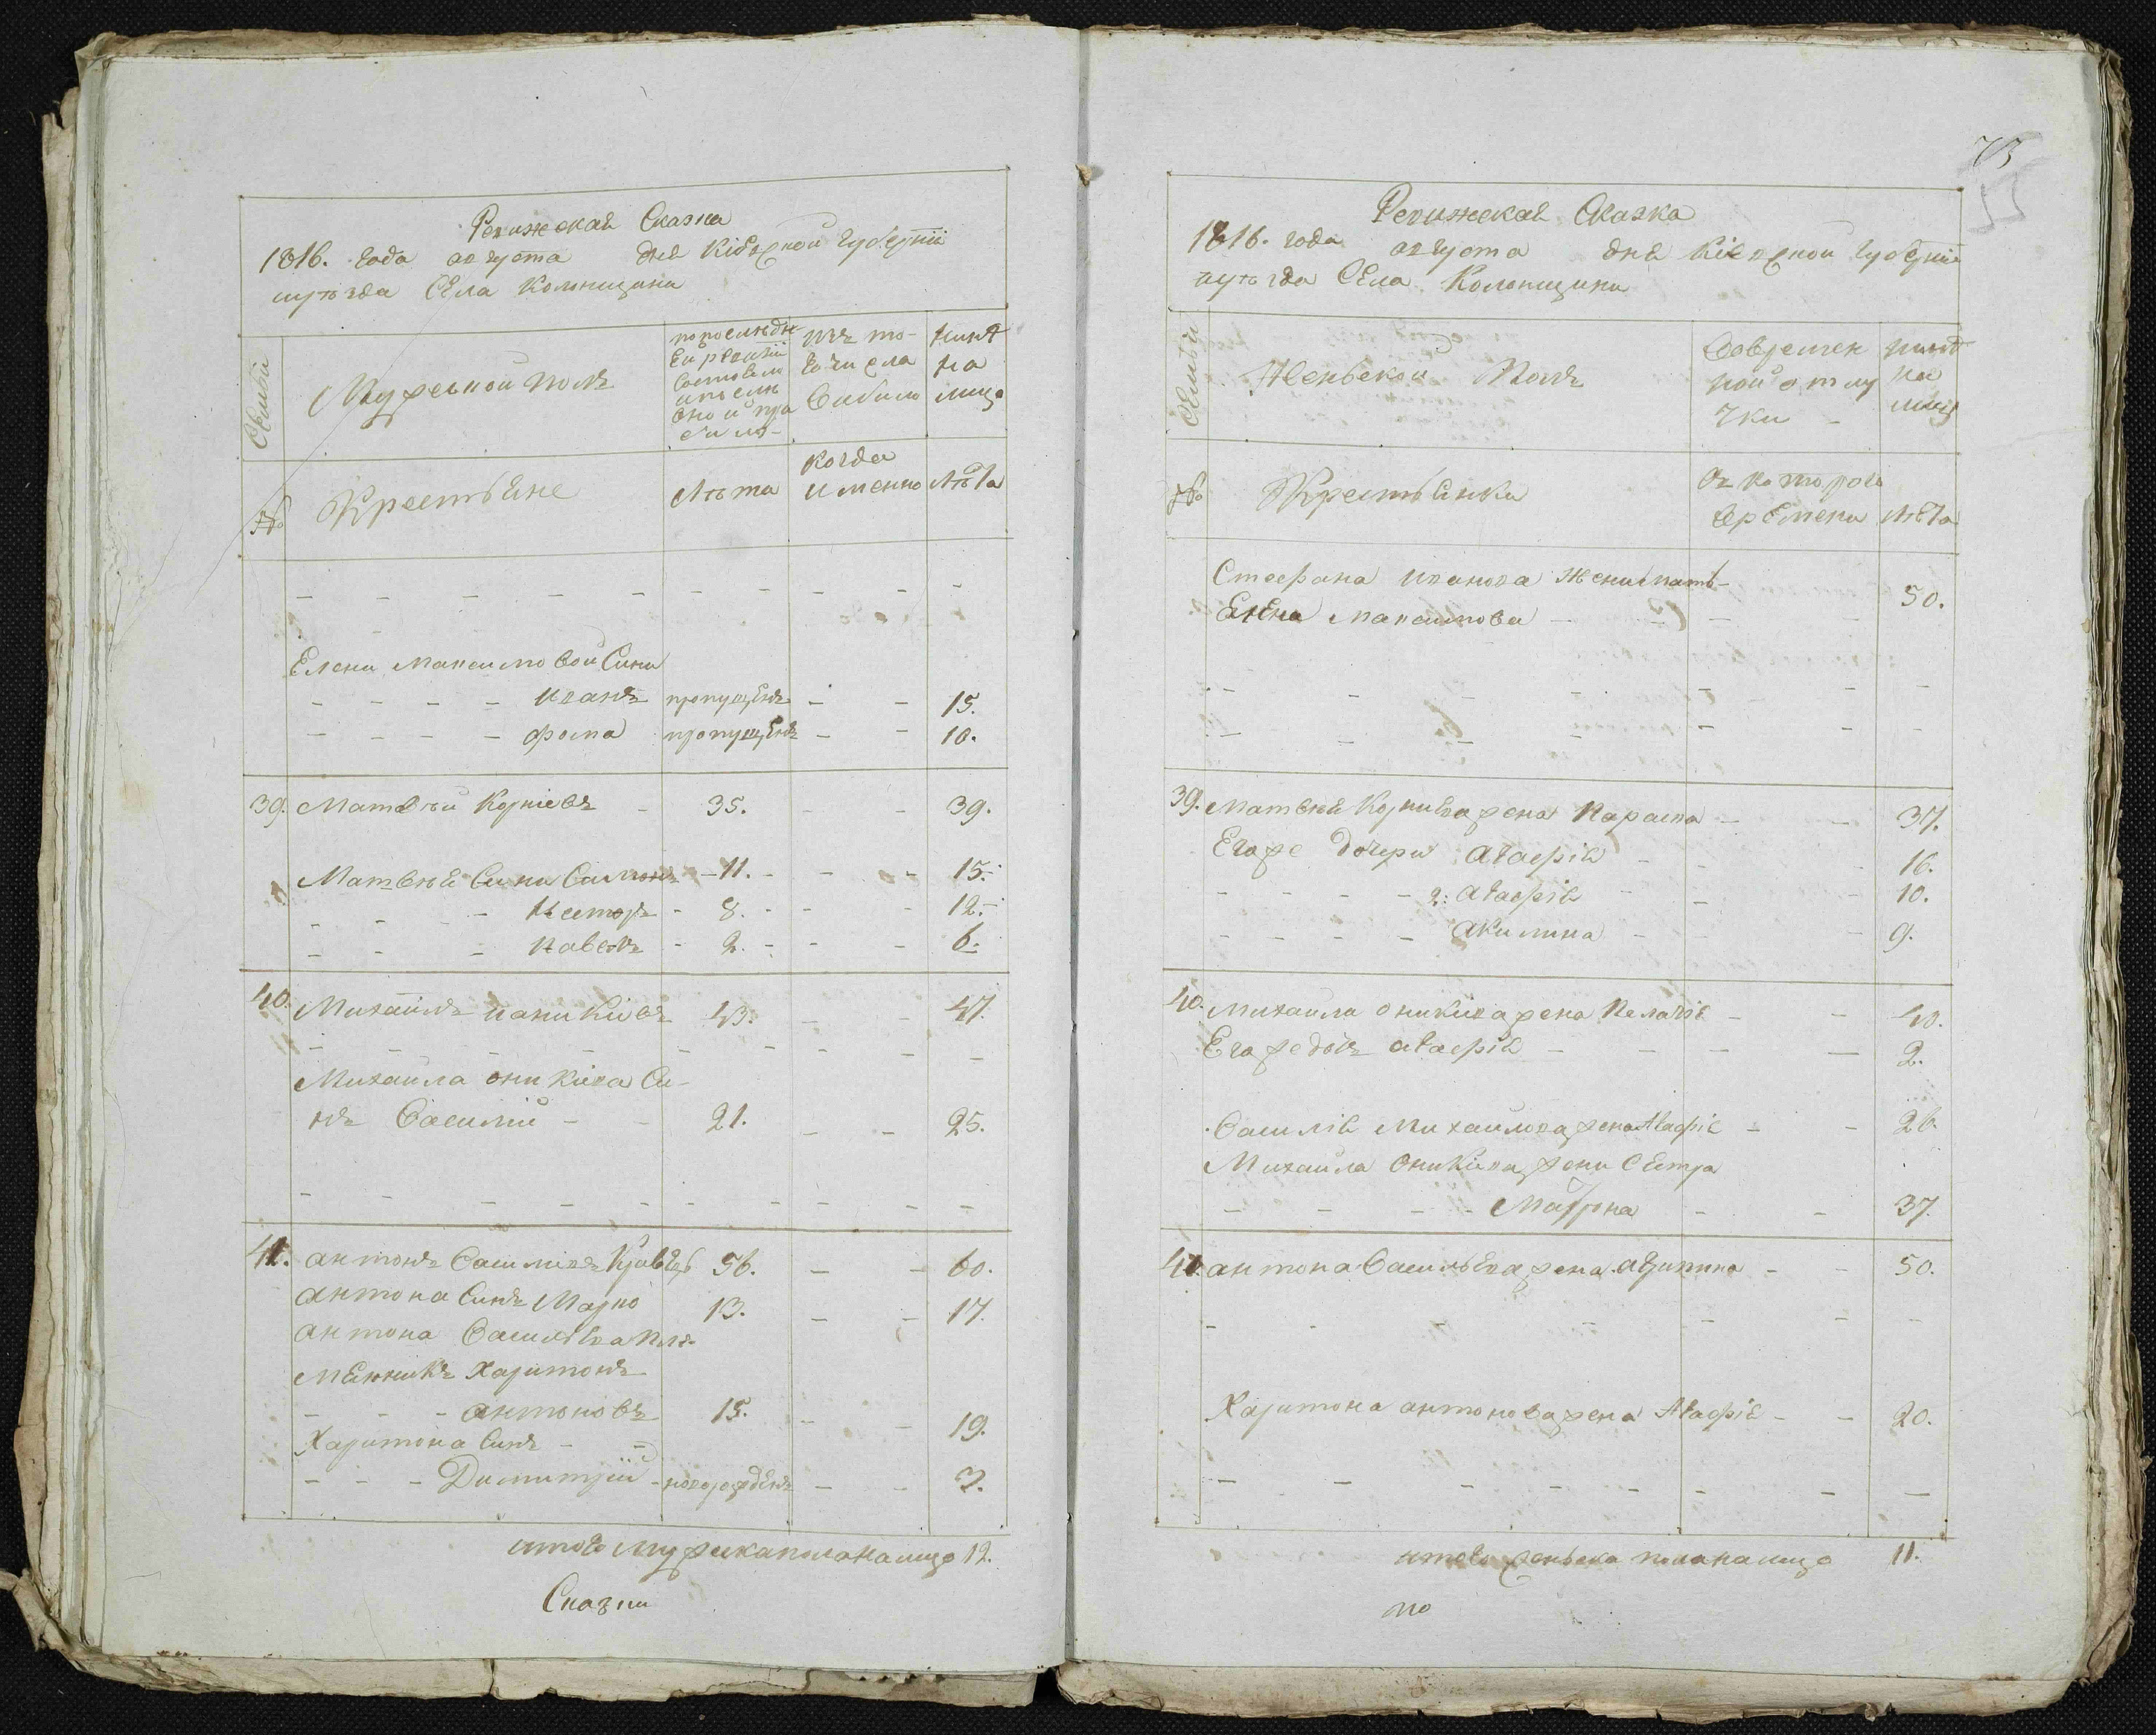 Ревижская Сказка
1816. года августа дня Кіевской губерніи
уѣзда Села Колонщини
Семьи
Мужеской полъ
по последн
ей ревизіи
состояло
и после
оной при
было
изъ то-
го числа
Выбыло
нинѣ
на
лицо
№
Крестьяне
Лѣта
когда
именно
Лѣта
Елени Максимовой Сини
Иванъ пропущенъ - - 15.
Фома пропущенъ - - 10.
39. Матвѣй Корніевъ - 35. - - 39.
Матвѣя Сини Самонъ - 11. - - 15.
Несторъ - 8. - - 12.
Павелъ - 2. - - 6.
40. Михаилъ Оникіевъ 43. - - 47.
Михаила Оникіева Си-
нъ Василий - - 21. - - 25.
41. Антонъ Василіевъ Кравецъ 56. - - 60.
Антона Синъ Марко 13. - - 17.
Антона Василѣва пле-
менникъ Харитонъ
Антоновъ 15. - - 19.
Харитона Синъ - -
Димитрій - новорожденъ - - 3.
итого мужеска пола налицо 12.
Сказки
73
55
Ревижская Сказка
1816. года августа дня Кіевской губерніи
уѣзда Села Колонщини
Семьи
Женьской Полъ
Вовремен
ной отлу
чки -
нинѣ
на
лицо
№
Крестьянки
Съ котораго
времени
лѣта
Стефана Иванова жени мать-
Елена Максимова - - - - 50.
39. Матвѣя Корніева жена Параска - - 37.
Егоже дочери Агафія - - 16.
2: Агафія - - - 10.
Акилина - - 9.
40. Михаила Оникіева жена Пелагія - - 40.
Егоже дочь Агафія - - - - 2.
Василія Михайлова жена Агафія - - 26.
Михаила Оникіева жени Сестра
Маѵрна - - 37.
41. Антона Васильева жена Агрипина - - 50.
Харитона Антонова жена Агафія - - 20.
итого женьска пола налицо 11.
по